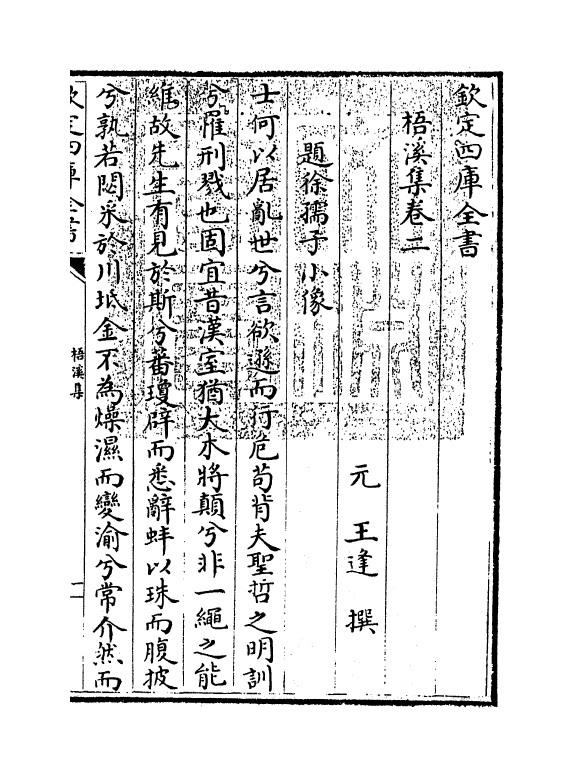 欽定四庫全書
梧溪集卷二
元 王逢 撰
題徐孺子小像
士何以居亂世兮言欲遜而行危茍背夫聖哲之明訓
兮罹刑戮也固宜昔漢室猶大木將顛兮非一繩之能
維故先生有見於斯兮蕃瓊辟而悉辭蚌以珠而腹披
兮孰若閟采於川坻金不為燥濕而變渝兮常介然而
欽定四庫全書
梧溪集
一